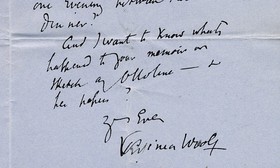 one evening between
dinner?
And I want to know what's
happened to your memoir or
sketch of Ottoline — &
her papers?
Yrs Ever
Virginia Woolf